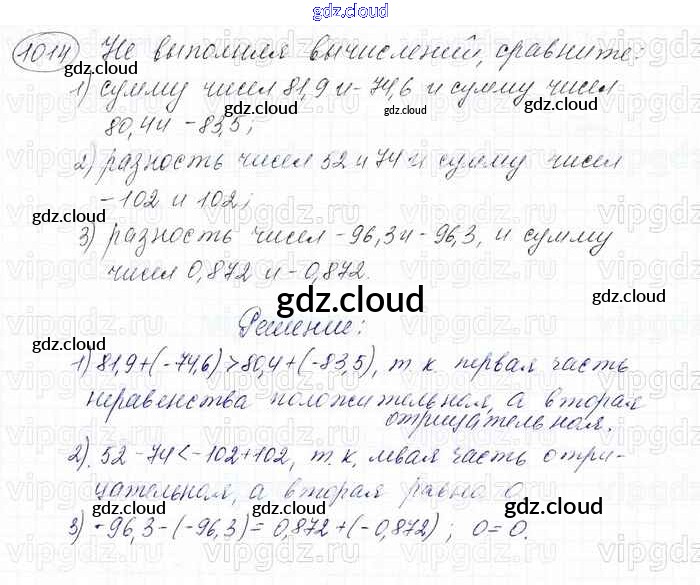 gdz.cloud
1014 Не выполняя вычислений, сравните:
gdz.cloud
1) сумму чисел 81,9 и -74,6 и сумму чисел
gdz.cloud gdz.cloud
80,4 и -83,5;
2) разность чисел 52 и 74 и сумму чисел
gdz.cloud
-102 и 102;
gdz.cloud
3) разность чисел -96,3 и -96,3, и сумму
gdz.cloud
числ 0,872 и -0,872.
gdz.cloud
gdz.cloud
Решение:
gdz.cloud
1) 81,9+(-74,6)>80,4+(-83,5), т.к. первая часть
gdz.cloud
неравенства положительная, а вторая
отрицательная.
gdz.cloud
2). 52-74<-102+102, т.к, левая часть отри-
цательная, а вторая равна 0.
gdz.cloud gdz.cloud gdz.cloud
3) -96,3-(-96,3)=0,872+(-0,872); 0=0.